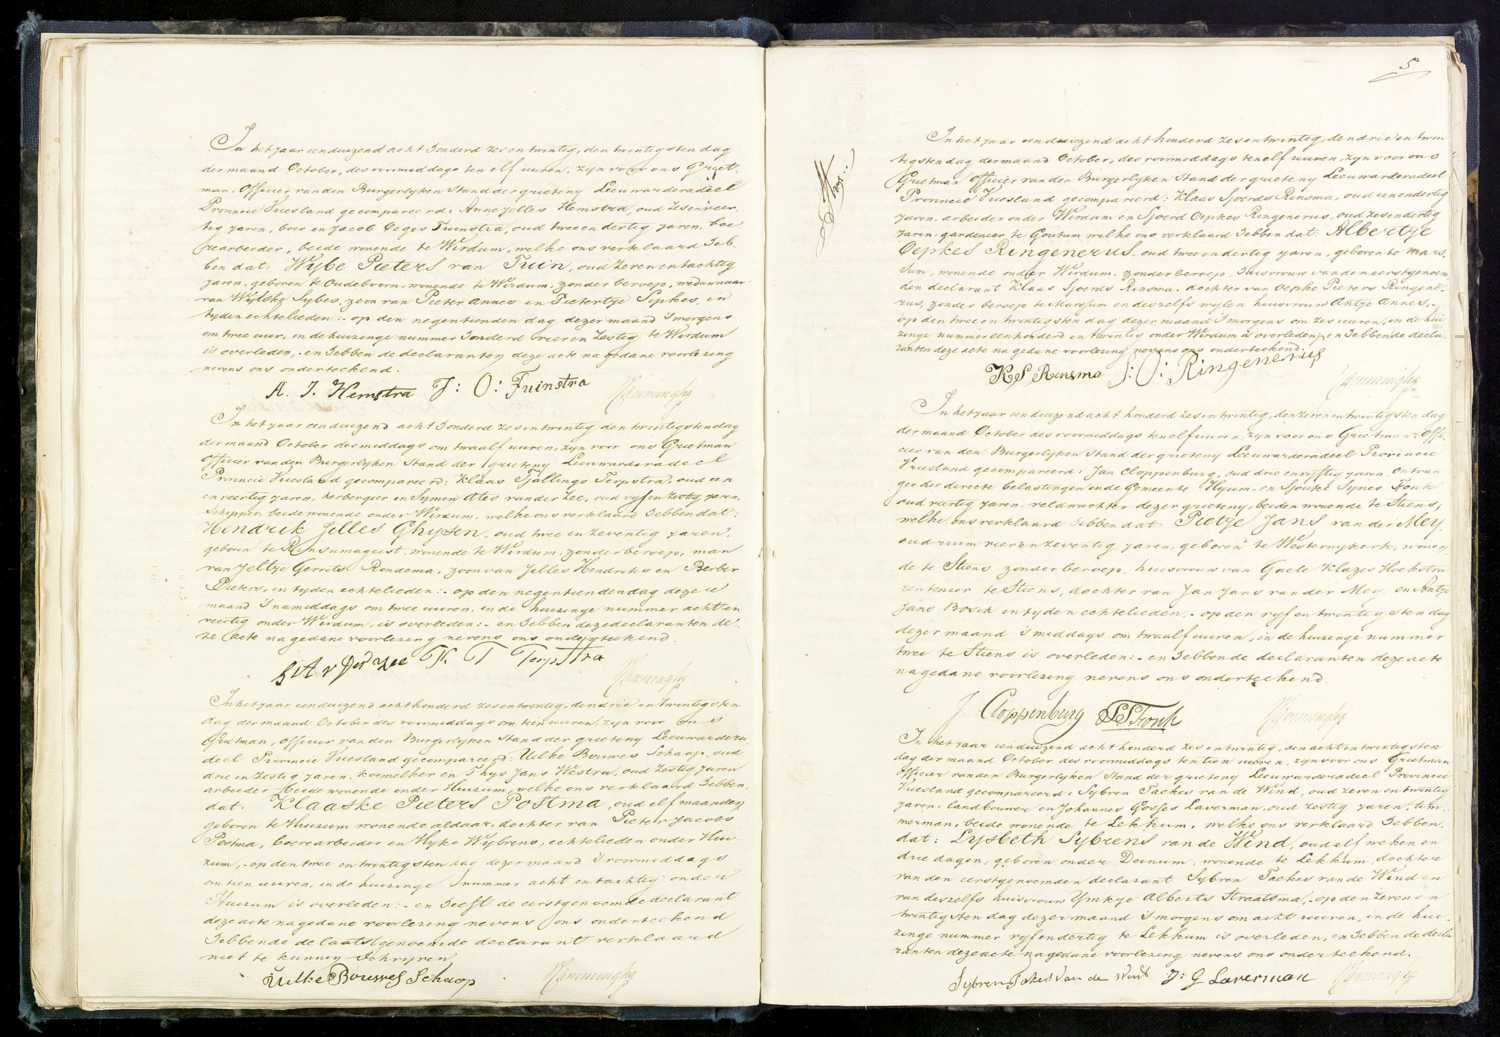 In het jaar eenduizend acht honderd zes en twintig, den twintigsten dag
der maand October, des voormiddags te elf uuren, zijn voor ons Griet-
man, Officier van den Burgerlyken Stand der grieteny Leeuwarderadeel
Provincie Vriesland gecompareerd: Anne Jelles Hemstra, oud zes en veer-
tig jaren, boer en Jacob Oeges Tuinstra, oud twee en dertig jaren, boe-
rearbeider, beide wonende te Wirdum, welke ons verklaard heb-
ben dat: Wybe Pieters van Tuin, oud zeven en tachtig
jaren, geboren te Oudeboorn, wonende te Wirdum, zonder beroep, weduwnaar
van Wytske Sybes, zoon van Pieter Annes en Tietertje Sipkes, in
tyden echtelieden:- op den negentienden dag dezer maand 's morgens
om twee uur, in de huizinge nummer honderd drie en zestig te Wirdum
is overleden,- en hebben de declaranten deze acte na gedane voorlezing
nevens ons onderteekend.
A. J. Hemstra J: O: Tuinstra
In het jaar eenduizend acht honderd zes en twintig den twintigsten dag
der maand October des middags om twaalf uuren, zijn voor ons Grietman
Officier van den Burgerlyken Stand der grieteny Leeuwarderadeel
Provincie Vriesland gecompareerd: Klaas Tjallings Terpstra, oud een
en veertig jaren, herbergier en Symen Ates van der Zee, oud vyf en zestig jaren,
Schipper beide wonende onder Wirdum, welke ons verklaard hebben dat:
Hendrik Jelles Ghysen, oud twee en zeventig jaren,
geboren te Rinsumageest, wonende te Wirdum, zonder beroep, man
van Jeltje Gerrits Rondema, zoon van Jelles Hendriks en Berber
Pieters, in tyden echtelieden:- op den negentienden dag dezer
maand 's namiddags om twee uuren, in de huizinge nummer acht en
veertig onder Wirdum, is overleden:- en hebben deze declaranten de-
ze acte na gedane voorlezing nevens ons onderteekend.
S: A v der zee K. T Terpstra
In het jaar eenduizend acht honderd zes en twintig, den drie en twintigsten
dag der maand October des voormiddags om tien uuren, zijn voor ons
Grietman, Officier van den Burgerlyken Stand der grieteny Leeuwardera-
deel Provincie Vriesland gecompareerd: Uilke Bouwes Schaap, oud
drie en zestig jaren, koemelker en Thys Jans Westra, oud zestig jaren
arbeider beide wonende onder Huizum, welke ons verklaard hebben,
dat: Klaaske Pieters Postma, oud elf maanden
geboren te Huizum wonende aldaar, dochter van Pieter Jacobs
Postma, boerearbeider en Hyke Wybrens, echtelieden onder Hui-
zum,- op den twee en twintigsten dag dezer maand 's voormiddags
om tien uuren, in de huizinge nummer acht en tachtig onder
Huizum is overleden:- en heeft de eerstgenoemde declarant
deze acte na gedane voorlezing nevens ons onderteekend
hebbende de laatstgenoemde declarant verklaard
niet te kunnen schryven
Uilke Bouwes Schaap
5
In het jaar eenduizend acht honderd zes en twintig, den drie en twin-
tigsten dag der maand October, des voormiddags te elf uuren, zyn voor ons
Grietman Officier van den Burgerlyken Stand der grieteny Leeuwarderadeel
Provincie Vriesland gecompareerd: Klaas Sjoerds Rinsma, oud een en dertig
jaren, arbeider onder Wirdum en Sjoerd Oepkes Ringenerus, oud zes en dertig
jaren, gardenier te Goutum welke ons verklaard hebben dat: Albertje
Oepkes Ringenerus, oud twee en dertig jaren, geboren te Mars-
sum, wonende onder Wirdum, zonder beroep, huisvrouw van den eerstgenoem-
den declarant Klaas Sjoerds Rinsma, dochter van Oepke Pieters Ringene-
rus, zonder beroep te Marssum en deszelfs wylen huisvrouw Antje Annes,-
op den twee en twintigsten dag dezer maand 's morgens om zes uuren, in de hui-
zinge nummer een honderd en veertig onder Wirdum is overleden, en hebben de decla-
ranten deze acte na gedane voorlezing nevens ons onderteekend.
K S Rinsma S: O: Ringenerus
In het jaar eenduizend acht honderd zes en twintig, den zeven en twintigsten dag
der maand October des voormiddags te elf uuren, zyn voor ons Grietman Offi-
cier van den Burgerlyken Stand der grieteny Leeuwarderadeel Provincie
Vriesland gecompareerd: Jan Cloppenburg, oud drie en vyftig jaren ontvan-
ger der directe belastingen in de Gemeente Hyum en Sjouke Synes Fonk
oud veertig jaren, veldwachter dezer grieteny, beiden wonende te Stiens,
welke ons verklaard hebben dat Pietje Jans van der Mey,
oud ruim vier en zeventig jaren, geboren te Westernykerk, wonen-
de te Stiens zonder beroep, huisvrouw van Gaele Klazes Hoekstra
rentenier te Stiens, dochter van Jan Jans van der Mey en Antje
Jans Bosch in tyden echtelieden,- op den vyf en twintigsten dag
dezer maand 's middags om twaalf uuren, in de huizinge nummer
twee te Stiens is overleden:- en hebben de declaranten deze acte
na gedane voorlezing nevens ons onderteekend.
J Cloppenburg SSFonk
In het jaar eenduizend acht honderd zes en twintig, den acht en twintigsten
dag der maand October des voormiddags te tien uuren, zyn voor ons Grietman
Officier van den Burgerlyken Stand der grieteny Leeuwarderadeel Provincie
Vriesland gecompareerd: Sybren Tackes van de Wind, oud zeven en twintig
jaren, landbouwer en Johannes Goofes Laverman, oud zestig jaren, tim-
merman, beide wonende te Lekkum, welke ons verklaard hebben,
dat: Lysbeth Sybrens van de Wind, oud elf weken en
drie dagen, geboren onder Deinum, wonende te Lekkum, dochter
van den eerstgenoemden declarant Sybren Tackes van de Wind en
van deszelfs huisvrouw Ymkje Alberts Straatsma,- op den zeven en
twintigsten dag dezer maand 's morgens om acht uuren, in de hui-
zinge nummer vyf en dertig te Lekkum is overleden, en hebben de decla-
ranten deze acte na gedane voorlezing nevens ons onderteekend.
Sybren Takes Van de Wind J: G Laverman